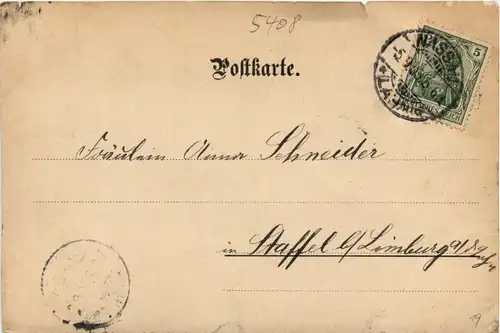 5408
Postkarte.
5
NASSAU
Fräulein Anna Schneider
in Staffel b/ Limburg a/
19